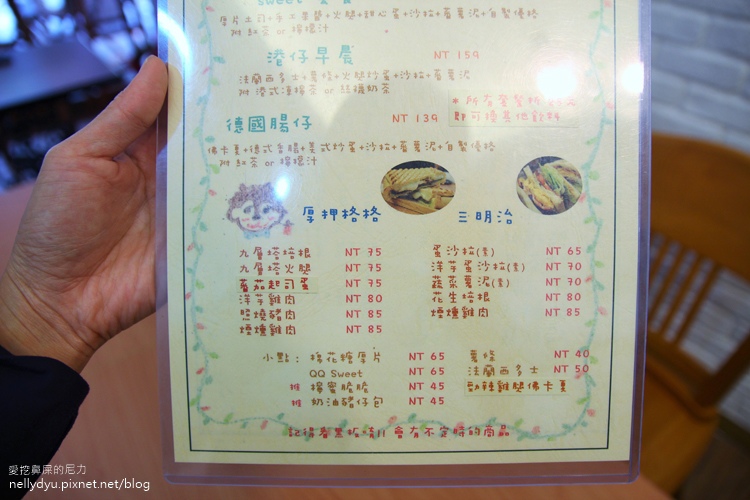 sweet
厚片土司+手工果醬+火腿+甜心蛋+沙拉+蕃薯泥+自製優格
附 紅茶 or 檸檬汁
港仔早晨 NT 159
法蘭西多士+薯條+火腿炒蛋+沙拉+蕃薯泥
附 港式凍檸茶 or 絲襪奶茶
* 所有套餐折
即可換其他飲料
德國腸仔 NT 139
佛卡夏+德式香腸+美式炒蛋+沙拉+蕃薯泥+自製優格
附 紅茶 or 檸檬汁
厚押格格
九層塔培根 NT 75
九層塔火腿 NT 75
蕃茄起司蛋 NT 75
洋芋雞肉 NT 80
照燒豬肉 NT 85
煙燻雞肉 NT 85
三明治
蛋沙拉(素) NT 65
洋芋蛋沙拉(素) NT 70
蔬菜薯泥(素) NT 70
花生培根 NT 80
煙燻雞肉 NT 85
小點: 棉花糖厚片 NT 65
QQ Sweet NT 65
推 檸蜜脆脆 NT 45
推 奶油豬仔包 NT 45
薯條 NT 40
法蘭西多士 NT 50
勁辣雞腿佛卡夏
記得看黑板唷!! 會有不定時的商品
愛挖鼻屎的尼力
nellydyu.pixnet.net/blog